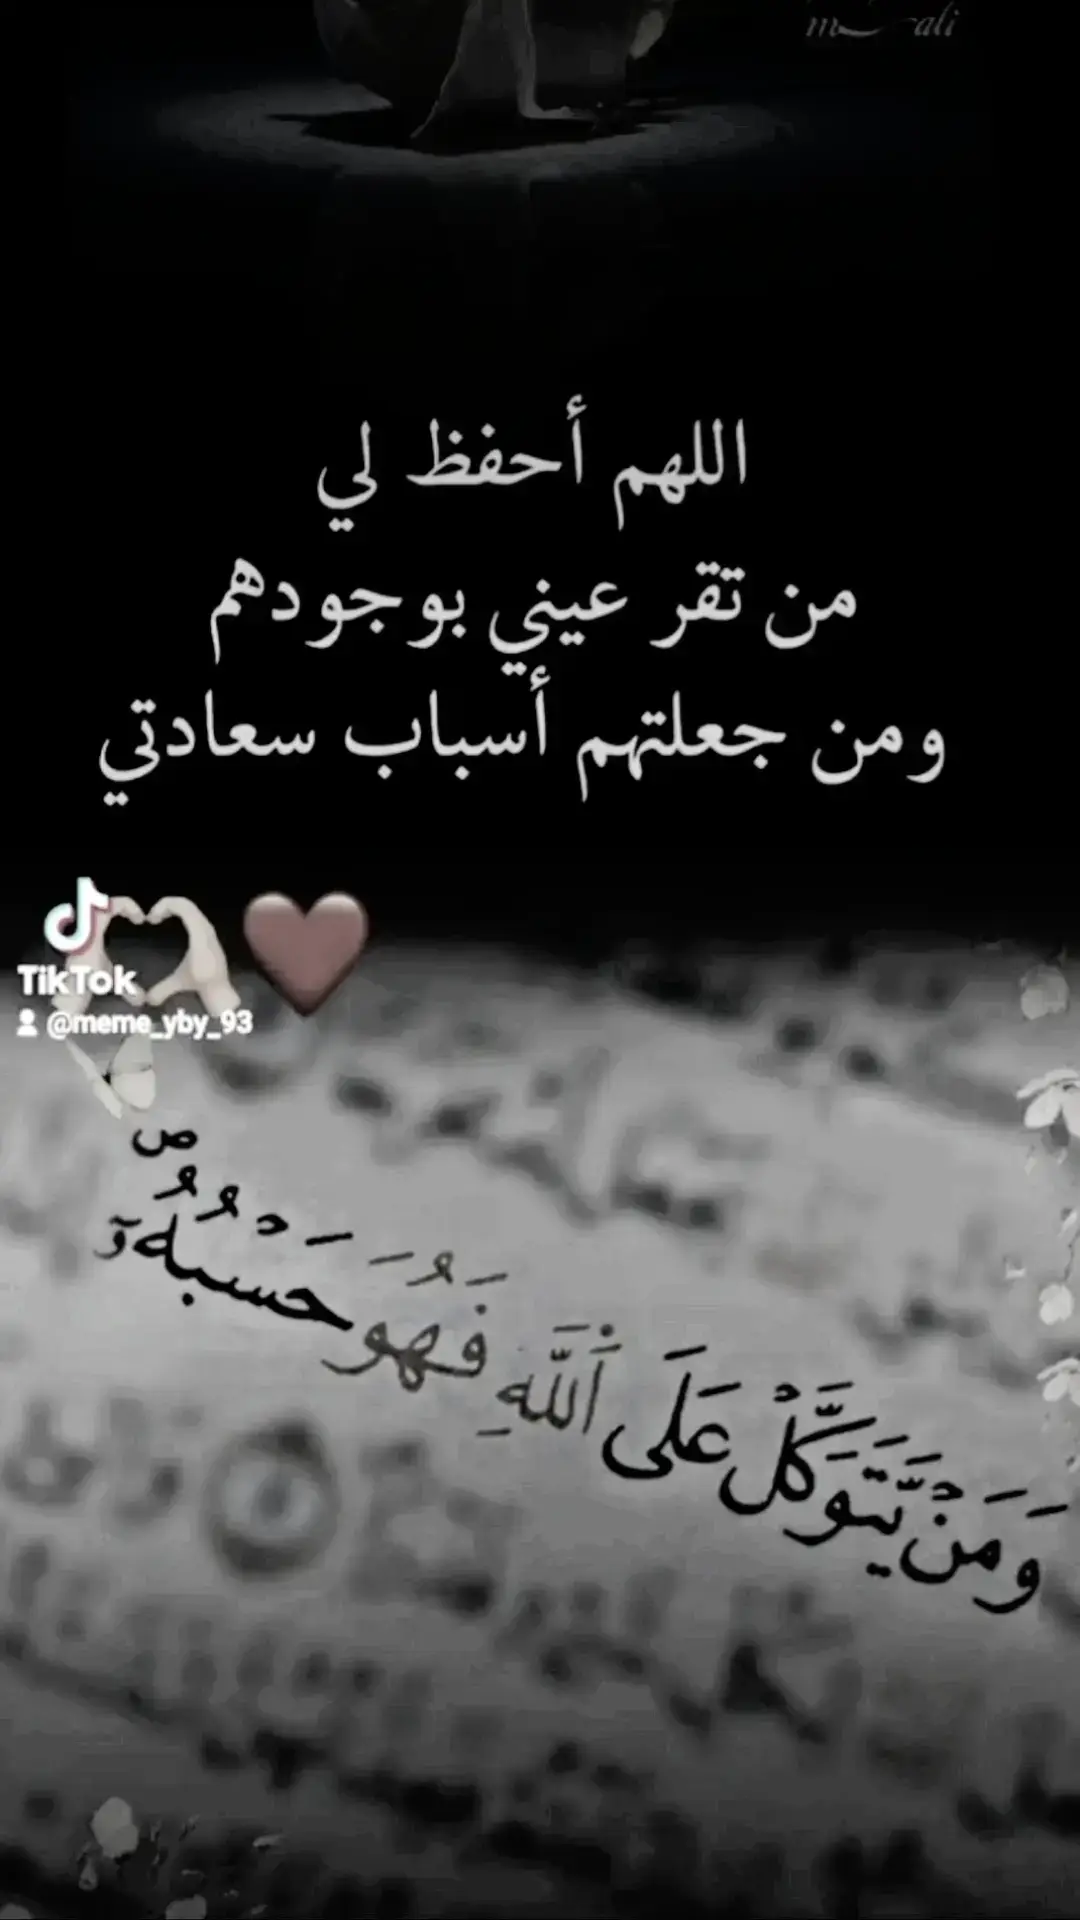 اللهم أحفظ لي
من تقر عيني بوجودهم
ومن جعلتهم أسباب سعادتي
TikTok
@meme_yby_93
وَمَنْ يَّتَوَكَّلْ عَلَى اللّٰهِ فَهُوَ حَسْبُهٗ